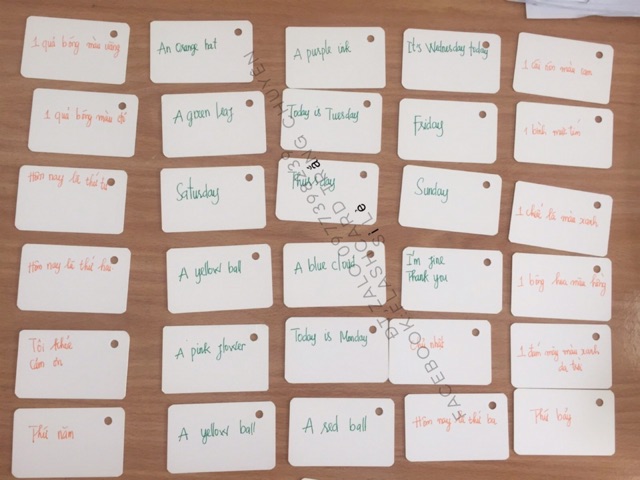 1 quả bóng màu vàng
An Orange hat
A purple ink
It's Wednesday today
1 cái nón màu cam
1 quả bóng màu đỏ
A green leaf
Today is Tuesday
Friday
1 bình mực tím
Hôm nay là thứ tư
Saturday
Thursday
Sunday
1 chiếc lá màu xanh
Hôm nay là thứ hai
A yellow ball
A blue cloud
I'm fine
Thank you
1 bông hoa màu hồng
Tôi khỏe
Cảm ơn
A pink flower
Today is Monday
Chủ nhật
1 đám mây màu xanh
da trời
Thứ năm
A yellow ball
A red ball
Hôm nay là thứ ba
Thứ bảy